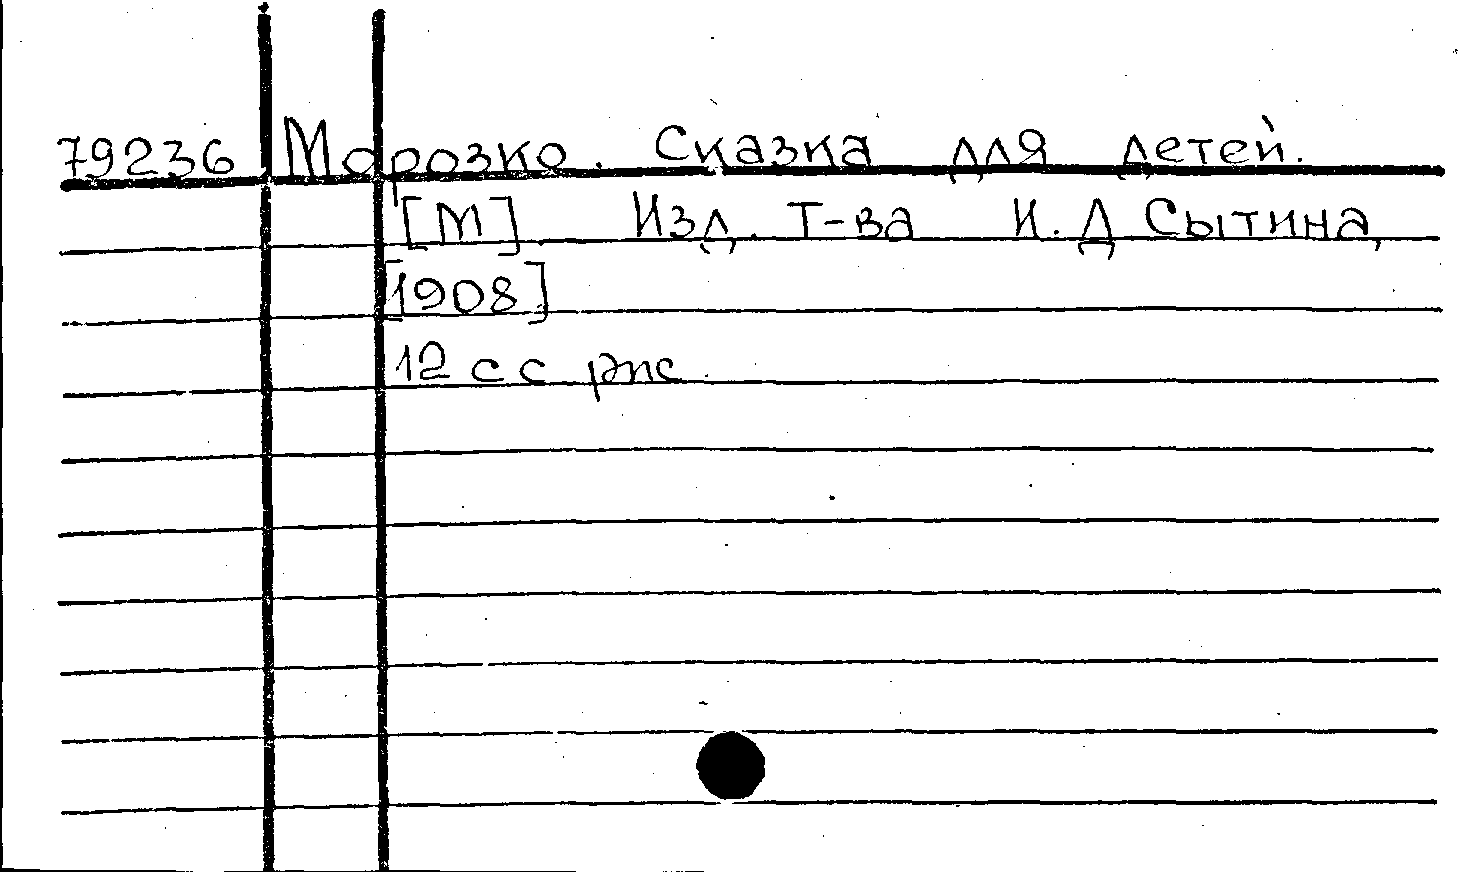 79236 Морозко. Сказка для детей.
[М] Изд. Т-ва И. Д Сытина,
[1908]
12 с с рис.